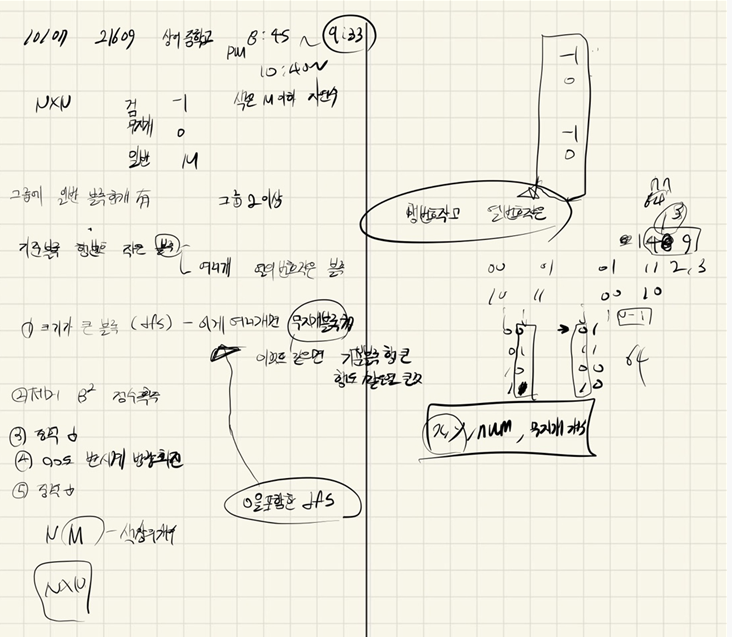 10/07 21609 상어 중학교 PM 8:45 ~ 9:33
10:40~
NXN 검 -1 색은 M이하 자연수
무지개 0
일반 M
그룹에 일반 블록 하나 有 그룹 2이상
기준블록 행번호 작은 블록
여러개 열의 번호작은 블록
① 크기가 큰 블록 (dfs) - 이게 여러개면 무지개블록
이것도 같으면 기준블록 행 큰
행도 같으면 큰
② 제거 B² 점수획득
③ 중력
④ 90도 반시계 방향회전
⑤ 중력
0을 포함한 dfs
N M - 색상의개수
NXN
-1
0
-1
0
행번호작고 열번호작은
64
1 3
14 9
00 01 01 11 2,3
10 11 00 10
N-1
00 01
01 11
00 00
10
64
x, y, num, 무지개 개수